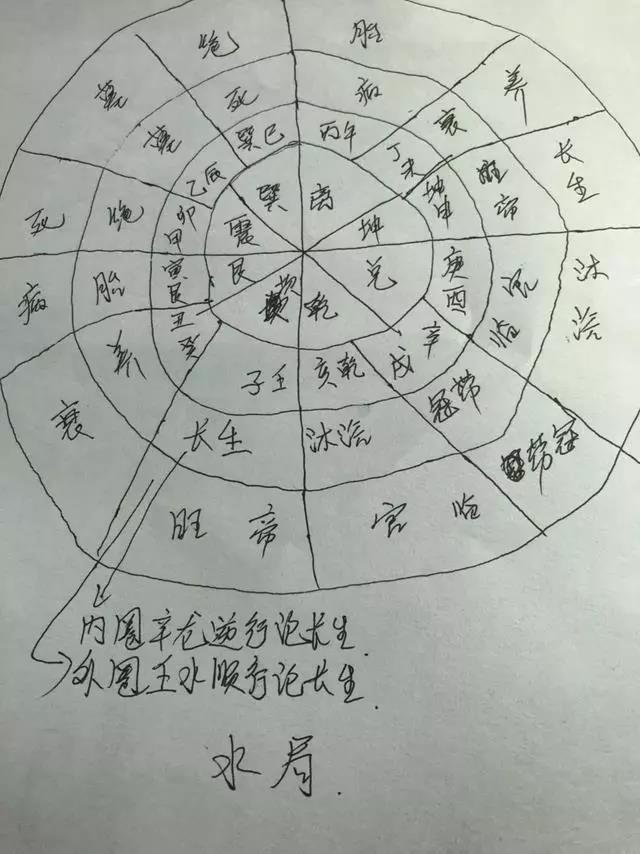 绝 胎
墓 死 病 养
墓 衰
癸巳 丙午
乙辰 丁未
长生
死 绝 卯甲 巽 离 坤申 旺帝
震 坤
病 胎 寅艮 艮 兑 庚酉 临 沐浴
乾
丑癸 辛戌
养 子壬 亥乾 冠带
衰 长生 沐浴 带冠
旺帝 官临
内圈辛龙逆行论长生
外圈壬水顺行论长生.
水局.